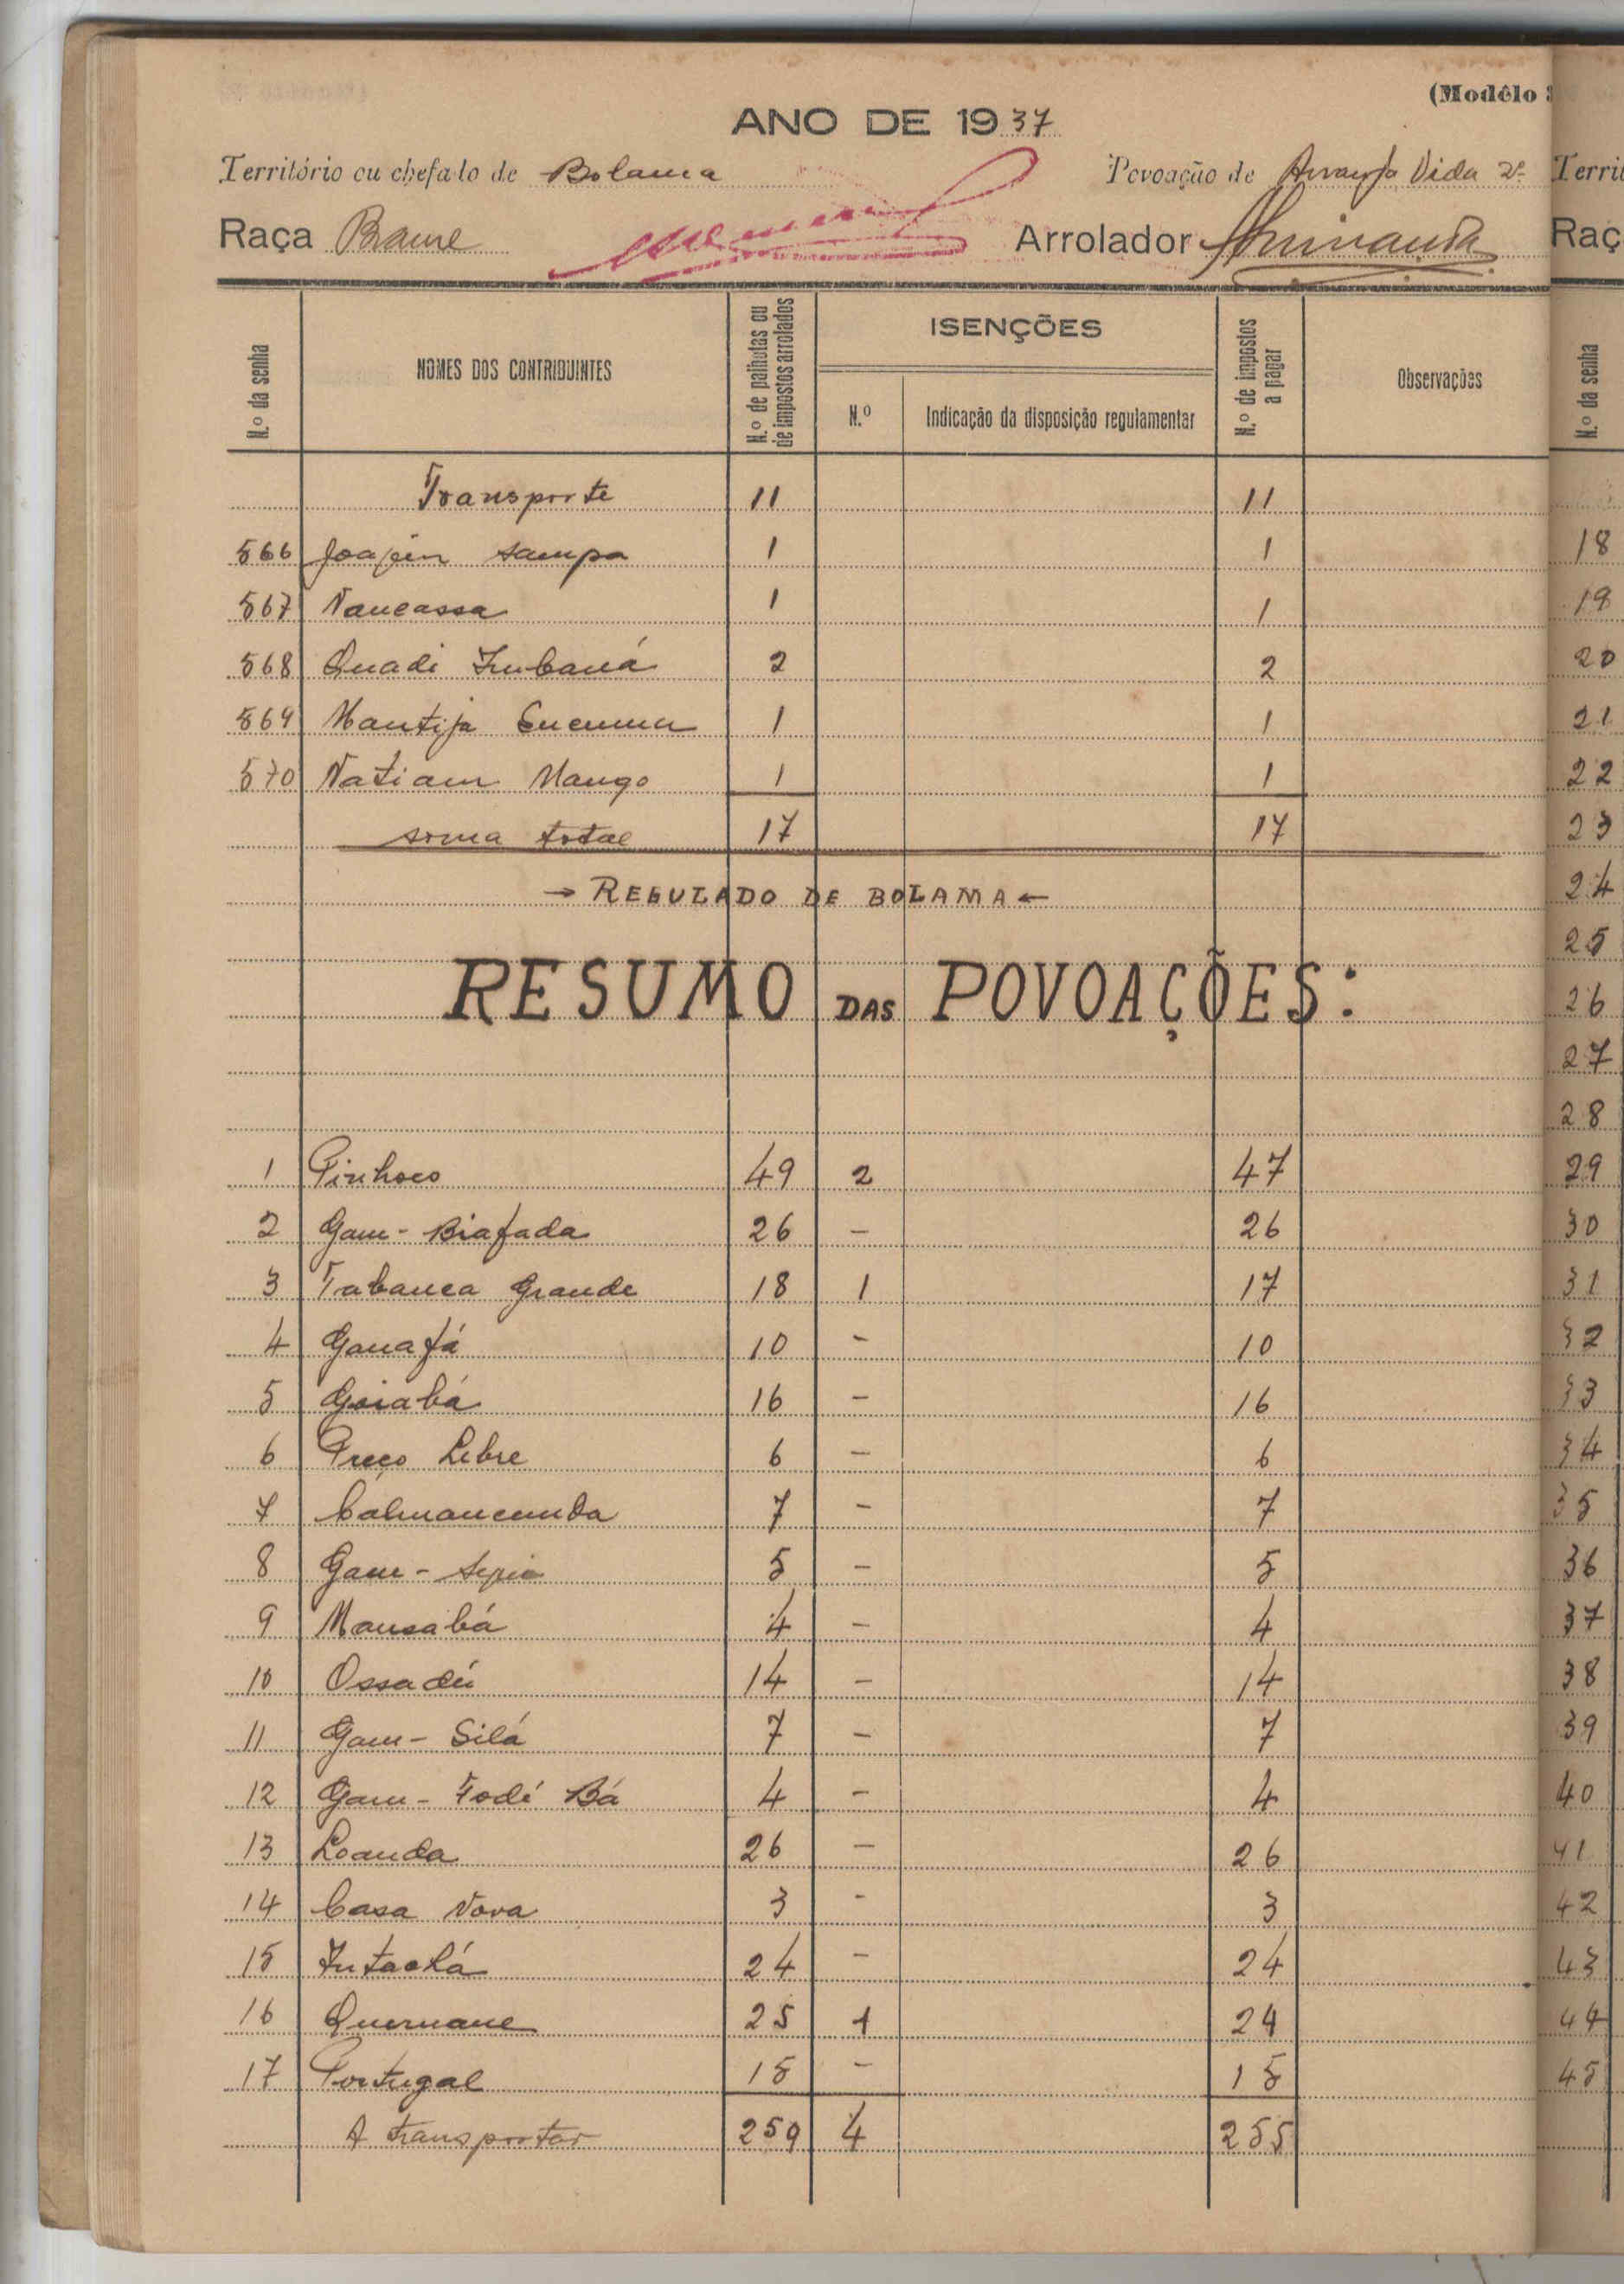 (Modêlo
ANO DE 1937
Território ou chefado de Bolama Povoação de Arranja Vida 2ª
Raça Brame Arrolador
N.º da senha NOMES DOS CONTRIBUINTES N.º de palhotas ou de impostos arrolados ISENÇÕES N.º Indicação da disposição regulamentar N.º de impostos a pagar Observações
Transporte 11 11
566 Joajin Sampa 1 1
567 Nancassa 1 1
568 Quadi 2 2
569 Mantija 1 1
570 Natiam Mango 1 1
soma total 17 17
→ REGULADO DE BOLAMA ←
RESUMO DAS POVOAÇÕES:
1 Pinhoco 49 2 47
2 Gam-Biafada 26 - 26
3 Tabanca Grande 18 1 17
4 Ganafá 10 - 10
5 Goiabá 16 - 16
6 Preço Lebre 6 - 6
7 Calmancunda 7 - 7
8 Gam- 5 - 5
9 Mansabá 4 - 4
10 Ossadú 14 - 14
11 Gam-Silá 7 - 7
12 Gam-Fodé Bá 4 - 4
13 Loanda 26 - 26
14 Casa Nova 3 - 3
15 24 - 24
16 25 1 24
17 Portugal 15 - 15
A transportar 259 4 255
Territ
Raç
N.º da senha
18
19
20
21
22
23
24
25
26
27
28
29
30
31
32
33
34
35
36
37
38
39
40
41
42
43
44
45